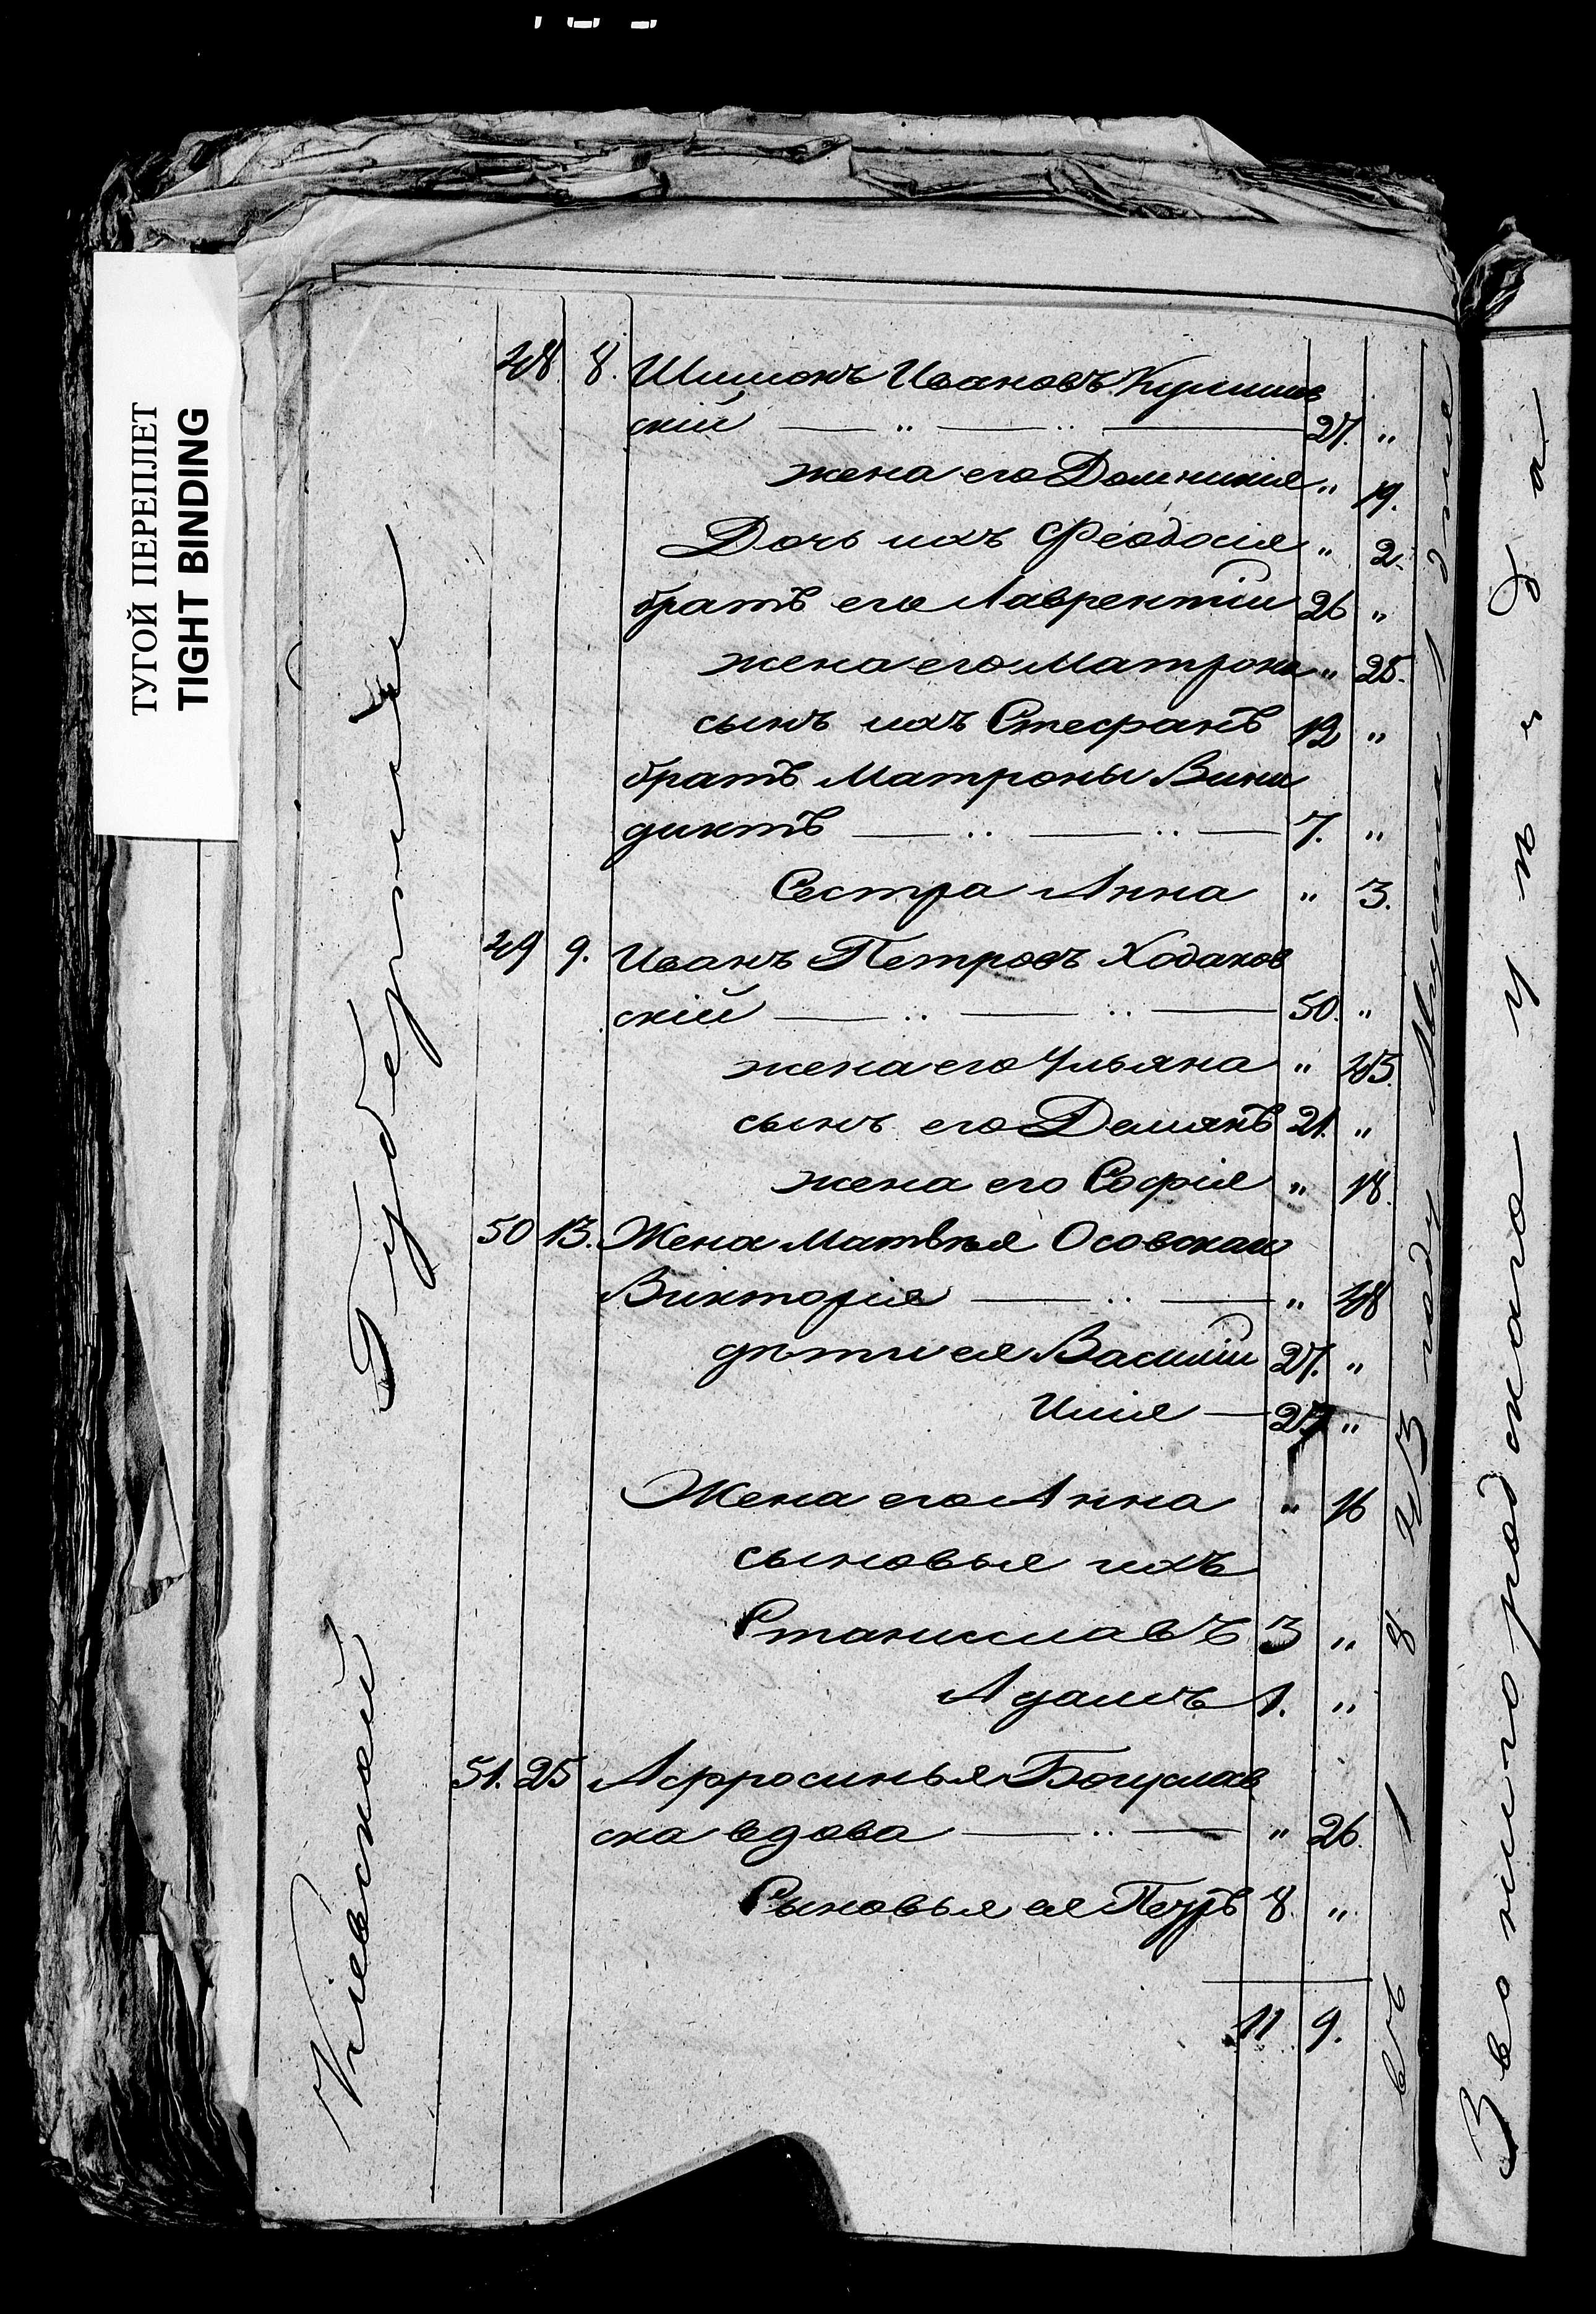 ТУГОЙ ПЕРЕПЛЕТ
TIGHT BINDING
Кіевской Губерніи
48 8. Шимонъ Ивановъ
скій — „ — „ — 27. „
жена его Домникія „ 19.
Дочь ихъ Феодосія „ 2.
братъ его Лаврентій 26 „
жена его Матрона „ 25.
сынъ ихъ Стефанъ 12 „
братъ Матроны Вини
диктъ — „ — „ — 7. „
Сестра Анна „ 3.
49 9. Иванъ Петровъ Ходаков
скій — „ — „ — 50. „
жена его Ульяна „ 45.
сынъ его Демянъ 21. „
жена его Софія „ 18.
50 13. Жена Матвѣя Осовскаго
Викторія — „ — „ 48
дѣти ея Василій 27. „
Илія — 25 „
Жена его Анна „ 16
сыновья ихъ
Станиславъ 3 „
Адамъ 1. „
51. 25 Афросинья Богуслав
ска вдова — „ — „ 26.
Сыновья ея Петръ 8. „
11 9.
въ 1843 году Августа 1 дня
Звенигородскаго уѣзда